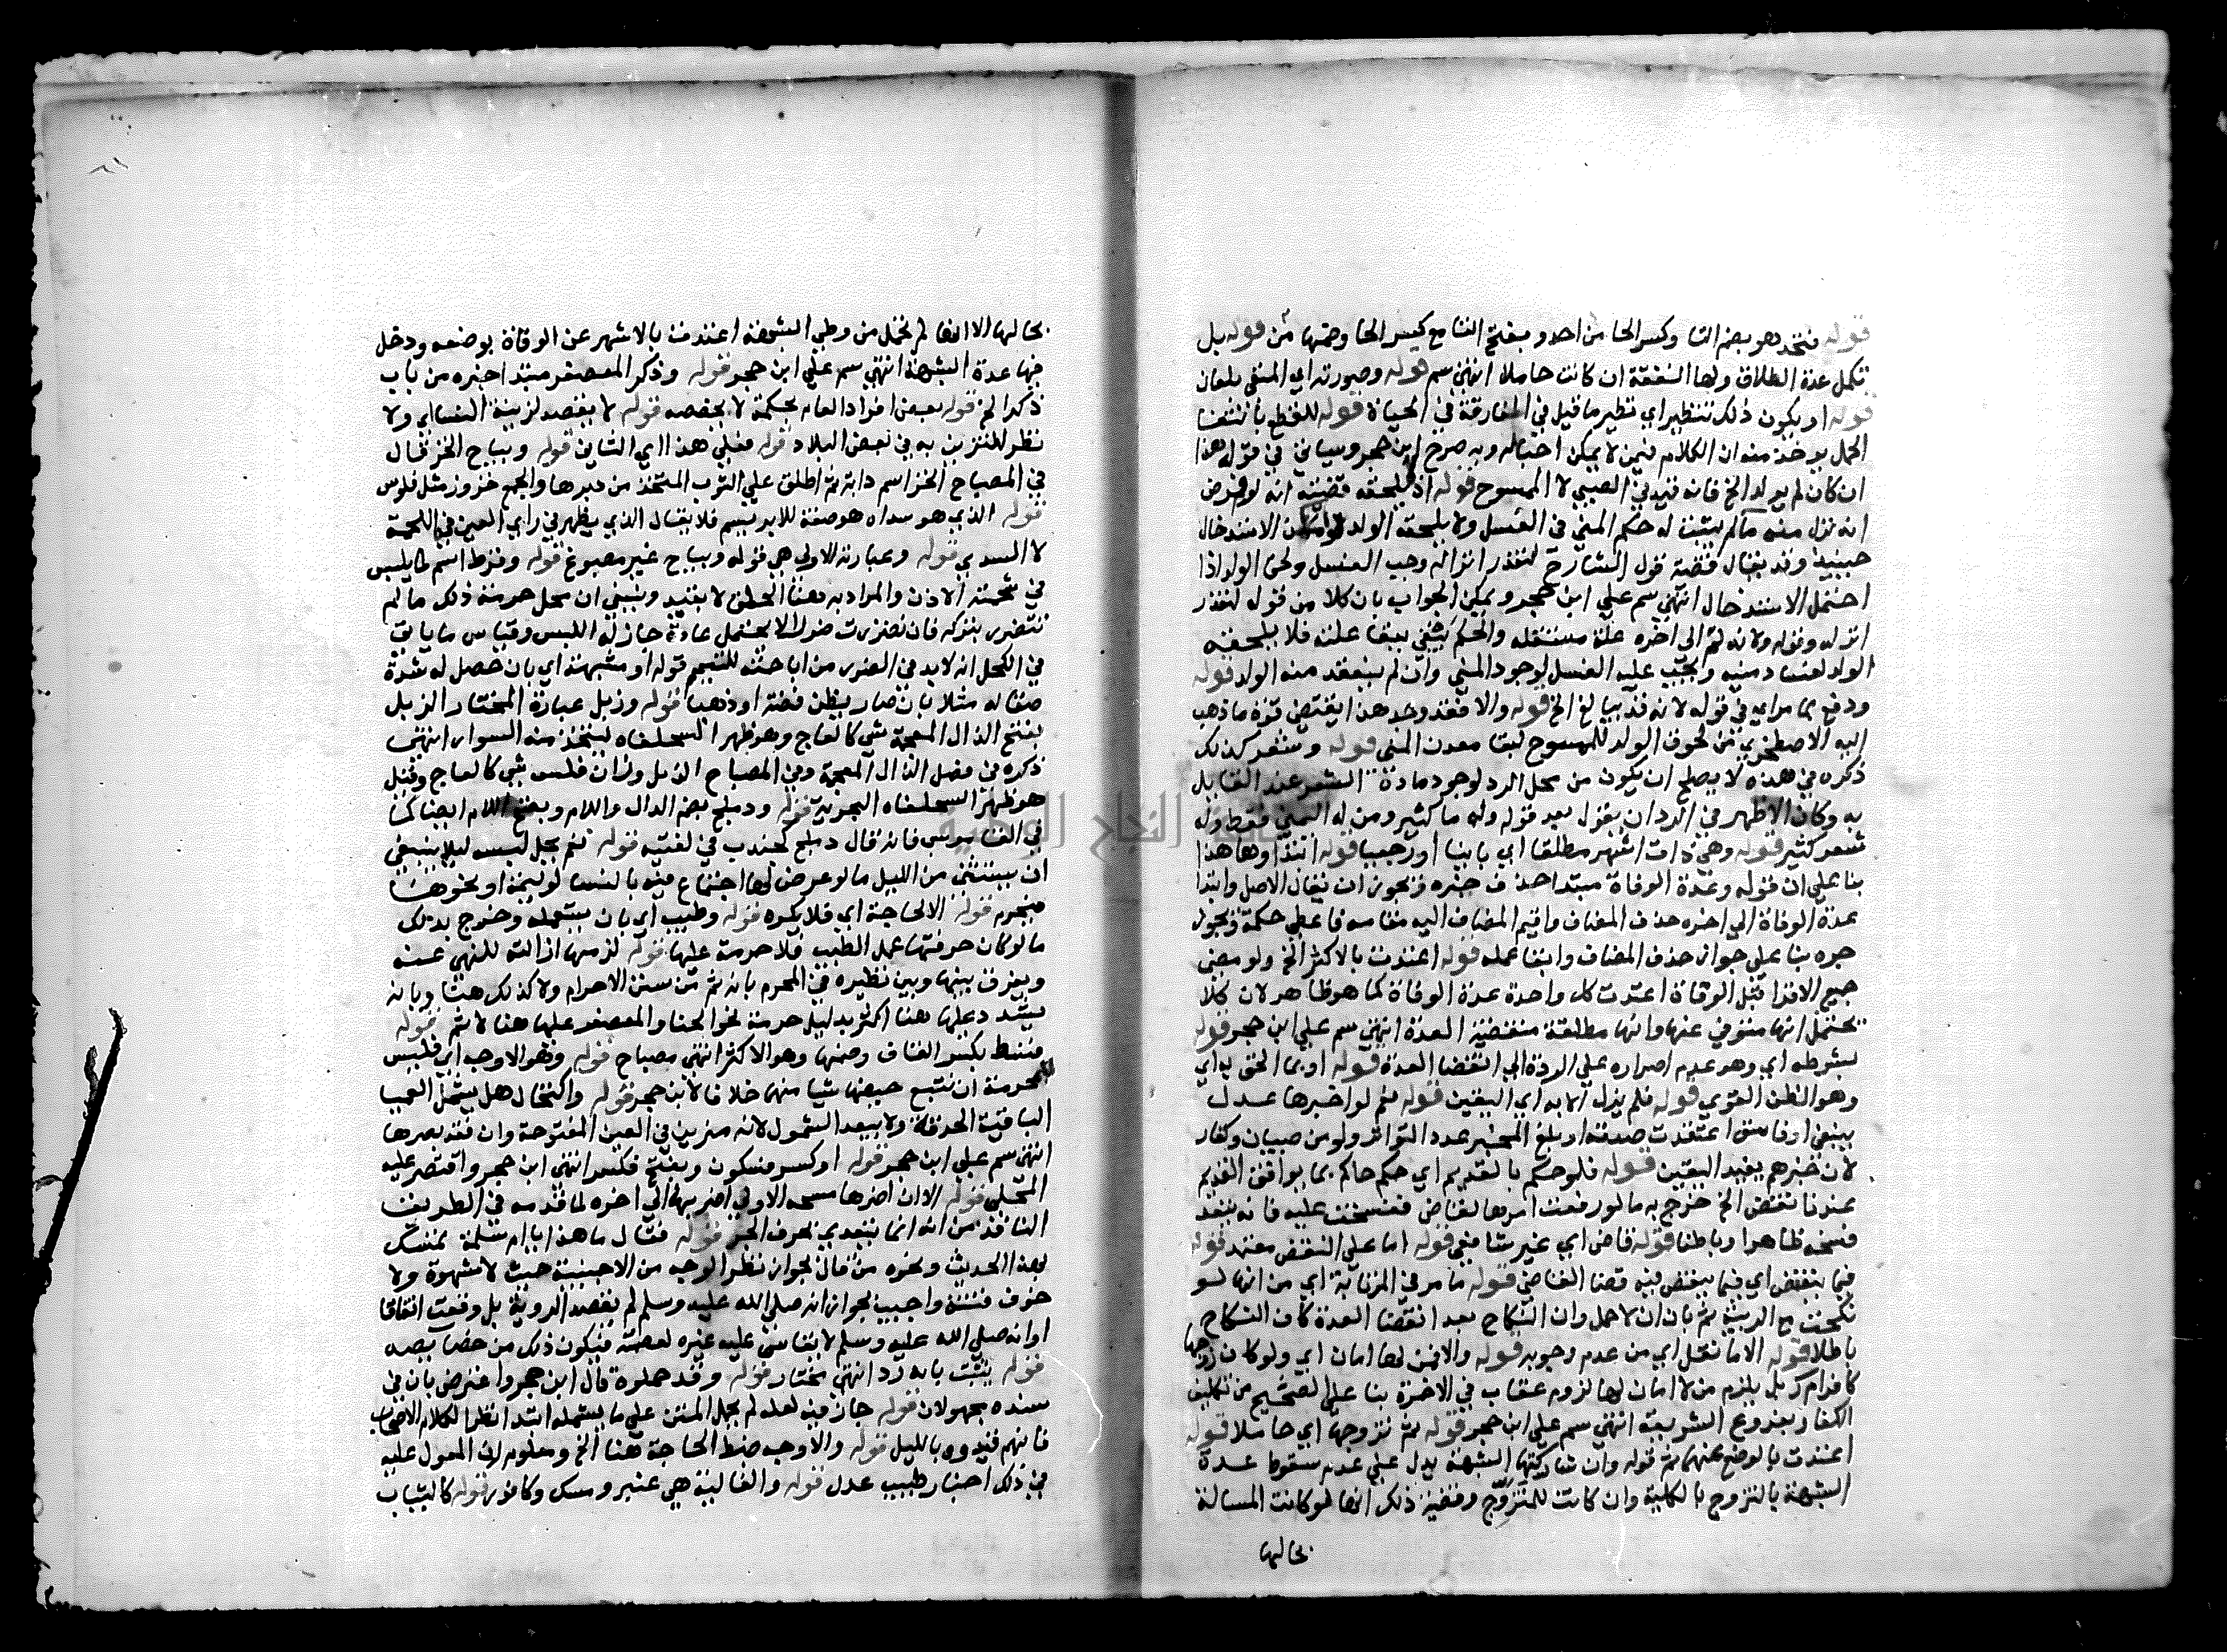 قوله فتحد هو بضم التا وكسر الحا من احد وبفتح التا مع كسر الحا وضمها من قوله بل
تكمل عدة الطلاق ولها النفقة ان كانت حاملا انتهى سم قوله وصورته اي المنفى بلعان
قوله او يكون ذلك تنظير اي نظير ما قيل في المفارقة في الحياة قوله للقطع بانتفا
الحمل يوخذ منه ان الكلام فيمن لا يمكن احباله وبه صرح ابن حجر وسياتي في قوله هذا
ان كان لم يولد الخ فانه قيد في الصبي لا الممسوح قوله اذ لا يلحقه قضيته انه لو فرض
انه نزل منه ما لم يثبت له حكم المني في الغسل ولا يلحقه الولد وامكن الاستدخال
حينيذ وقد يقال قضية قول الشارح لتعذر انزاله وجب الغسل ولحق الولد اذا
احتمل الاستدخال انتهى سم علي ابن حجر ويمكن الجواب بان كلا من قوله لتعذر
انزاله وقوله ولانه لم الى اخره علة مستقله والحكم يبقى ببقا علته فلا يلحقه
الولد لفساد منيه ويجب عليه الغسل لوجود المني وان لم ينعقد منه الولد قوله
ودفع بما مر اي في قوله لانه قد يبالغ الخ قوله والا فقد وجد هذا يقتضي قوة ما ذهب
اليه الاصطخري من لحوق الولد للممسوح لبقا معدن المني قوله وشعر كذلك
ذكره في هذه لا يصلح ان يكون من محل الرد لوجود مادة الشعر عند القايل
به وكان الاظهر في الرد ان يقول بعد قوله وله ما كثير ومن له اليمنى فقط وله
شعر كثير قوله وهي ذات اشهر مطلقا اي باينا او رجعيا قوله ابتداوها هذا
بنا علي ان قوله وعدة الوفاة مبتدا حذف خبره ويجوز ان يقال الاصل وابتدا
عدة الوفاة الي اخره حذف المضاف واقيم المضاف اليه مقامه فاعطي حكمه ويجوز
جره بنا علي جواز حذف المضاف وابقا عمله قوله اعتدت بالاكثر الخ ولو مضى
جميع الاقرا قبل الوفاة اعتدت كل واحدة عدة الوفاة كما هو ظاهر لان كلا
يحتمل انها متوفي عنها وانها مطلقة منقضية العدة انتهى سم علي ابن حجر قوله
بشرطه اي وهو عدم اصراره علي الردة الي انقضا العدة قوله او بما الحق به اي
وهو الظن القوي قوله فلم يزل الا به اي اليقين قوله نعم لو اخبرها عدل
ينبغي او فاسق اعتقدت صدقه او بلغ المخبر عدد التواتر ولو من صبيان وكفار
لان خبرهم يفيد اليقين قوله فلو حكم بالقديم اي حكم حاكم بما يوافق القديم
عندنا نقض الخ خرج به ما لو رفعت امرها لقاض ففسخت عليه فانه ينفذ
فسخه ظاهرا وباطنا قوله قاض اي غير شافعي قوله اما علي النقض معتمد قوله
فيما ينقض اي فيما ينقض فيه قضا القاضي قوله ما مر في المرتابة اي من انها لو
نكحت مع الريبة ثم بان ان لا حمل وان النكاح بعد انقضا العدة كان النكاح
باطلا قوله الا ما نقل اي من عدم وجوبه قوله والا فمن لها امان اي ولو كان زوجها
كافرا م ر بل يلزم من لا امان لها لزوم عقاب في الاخرة بنا علي الصحيح من تكليف
الكفار بفروع الشريعة انتهى سم علي ابن حجر قوله ثم تزوجها اي حاملا قوله
اعتدت بالوضع عنهما ثم قوله وان شاركتها الشبهة يدل علي عدم سقوط عدة
الشبهة بالتزوج بالكلية وان كانت للمتزوج وقضية ذلك انها لو كانت المسالة
بحالها
بحالها الا انها لم تحمل من وطي الشبهة اعتدت بالاشهر عن الوفاة بوضعه ودخل
فيها عدة الشبهة انتهى سم علي ابن حجر قوله وذكر المعصفر مبتدا خبره من باب
ذكر الخ قوله بعض افراد العام بحكمه لا يخصصه قوله لا يقصد لزينة النسا اي ولا
نظر للتزين به في بعض البلاد قوله فعلي هذا اي الثاني قوله ويباح الخز قال
في المصباح الخز اسم دابة ثم اطلق علي الثوب المتخذ من وبرها والجمع خزوز مثل فلوس
قوله الذي هو سداه هو صفة للابريسم فلا يقال الذي يظهر في راي العين في اللحمة
لا السدي قوله وعبارته الاولى هي قوله ويباح غير مصبوغ قوله وقرط اسم لما يلبس
في شحمة الاذن والمراد به هنا الحلق لا بقيد وينبغي ان محل حرمة ذلك ما لم
تتضرر بتركه فان تضررت ضررا لا يحتمل عادة جاز له اللبس وقياس ما ياتي
في الكحل انه لا بد في الضرر من اباحته للتيمم قوله او مشبهته اي بان حصل له شدة
صقاله مثلا بان صار يظن فضة او ذهبا قوله وذبل عبارة المختار الذبل
بفتح الذال المعجمة شي كالعاج وهو ظهر السحلفاه يتخذ منه السوار انتهى
ذكره في فصل الذال المعجمة وفي المصباح الذبل وزان فلس شي كالعاج وقيل
هو ظهر السحلفاه البحرية قوله ودملج بضم الدال واللام وبفتح اللام ايضا كما
في القاموس فانه قال دملج كجندب في لغتيه قوله نعم يحل لبسه ليلا ينبغي
ان يستثنى من الليل ما لو عرض لها اجتماع فيه بالنسا لوليمة او نحوها
فيحرم قوله الا لحاجة اي فلا يكره قوله وطيب اي بان تستعمله وخرج بذلك
ما لو كان حرفتها عمل الطيب فلا حرمة عليها قوله لزمها ازالته للنهي عنه
ويفرق بينها وبين نظيره في المحرم بانه ثم من سنن الاحرام ولا كذلك هنا وبانه
يشدد عليها هنا اكثر بدليل حرمة نحو الحنا والمعصفر عليها هنا لا ثم قوله
فتنط بكسر القاف وضمها وهو الاكثر انتهى مصباح قوله وهو الاوجه اي فليس
للمحرمة ان تتبع حيضها شيا منهما خلافا لابن حجر قوله واكتحال هل يشمل العميا
الباقية الحدقة ولا يبعد الشمول لانه مزين في العين المفتوحة وان فقد بصرها
انتهى سم علي ابن حجر قوله او كسر فسكون وبفتح فكسر انتهى ابن حجر واقتصر عليه
المحلي قوله الا ان اضرها مسحه الاولى اضر بها الي اخره لما قدمه في الطريف
النافذ من انه انما يتعدي بحرف الجر قوله فقال ما هذا يا ام سلمة تمسك
بهذا الحديث ونحوه من قال بجواز نظر الوجه من الاجنبية حيث لا شهوة ولا
خوف فتنة واجيب بجواز انه صلي الله عليه وسلم لم يقصد الروية بل وقعت اتفاقا
او انه صلي الله عليه وسلم لا يقاس عليه غيره لعصمته فيكون ذلك من خصايصه
قوله يثبت بابه رد انتهى مختار قوله وقد حملوه قال ابن حجر واعترض بان في
سنده مجهولان قوله جاز فيه لعله لم يحمل المتن علي ما يستعمله ابتدا نظرا لكلام الاصحاب
فانهم قيدوه بالليل قوله والاوجه ضبط الحاجة هنا الخ ومعلوم ان المعول عليه
في ذلك اخبار طبيب عدل قوله والغالية هي عنبر ومسك وكافور قوله كالثياب
جامعة النجاح الوطنية